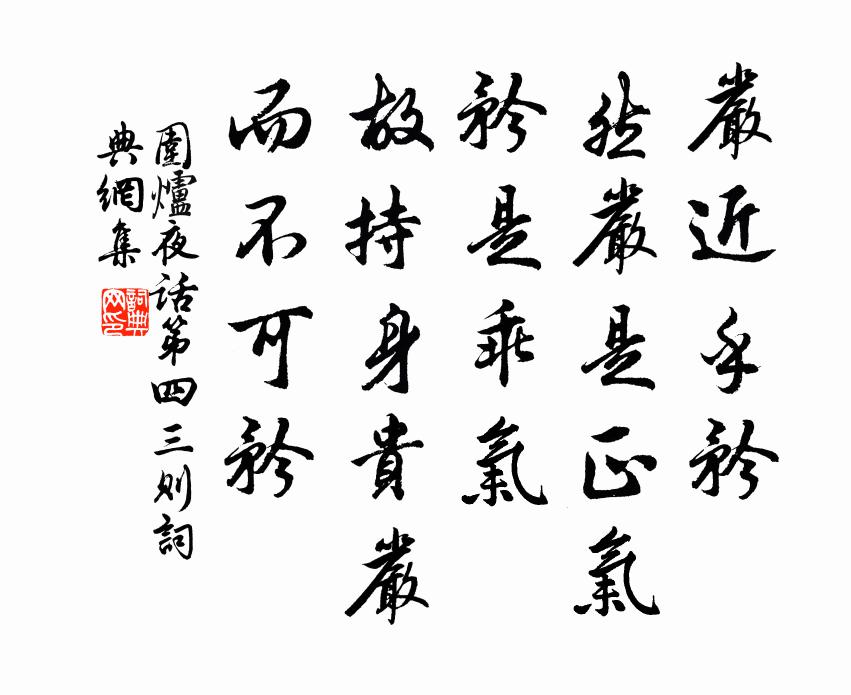 嚴近乎矜
然嚴是正氣
矜是乖氣
故持身貴嚴
而不可矜
圍爐夜話第四三則詞
典網集
詞典
网印